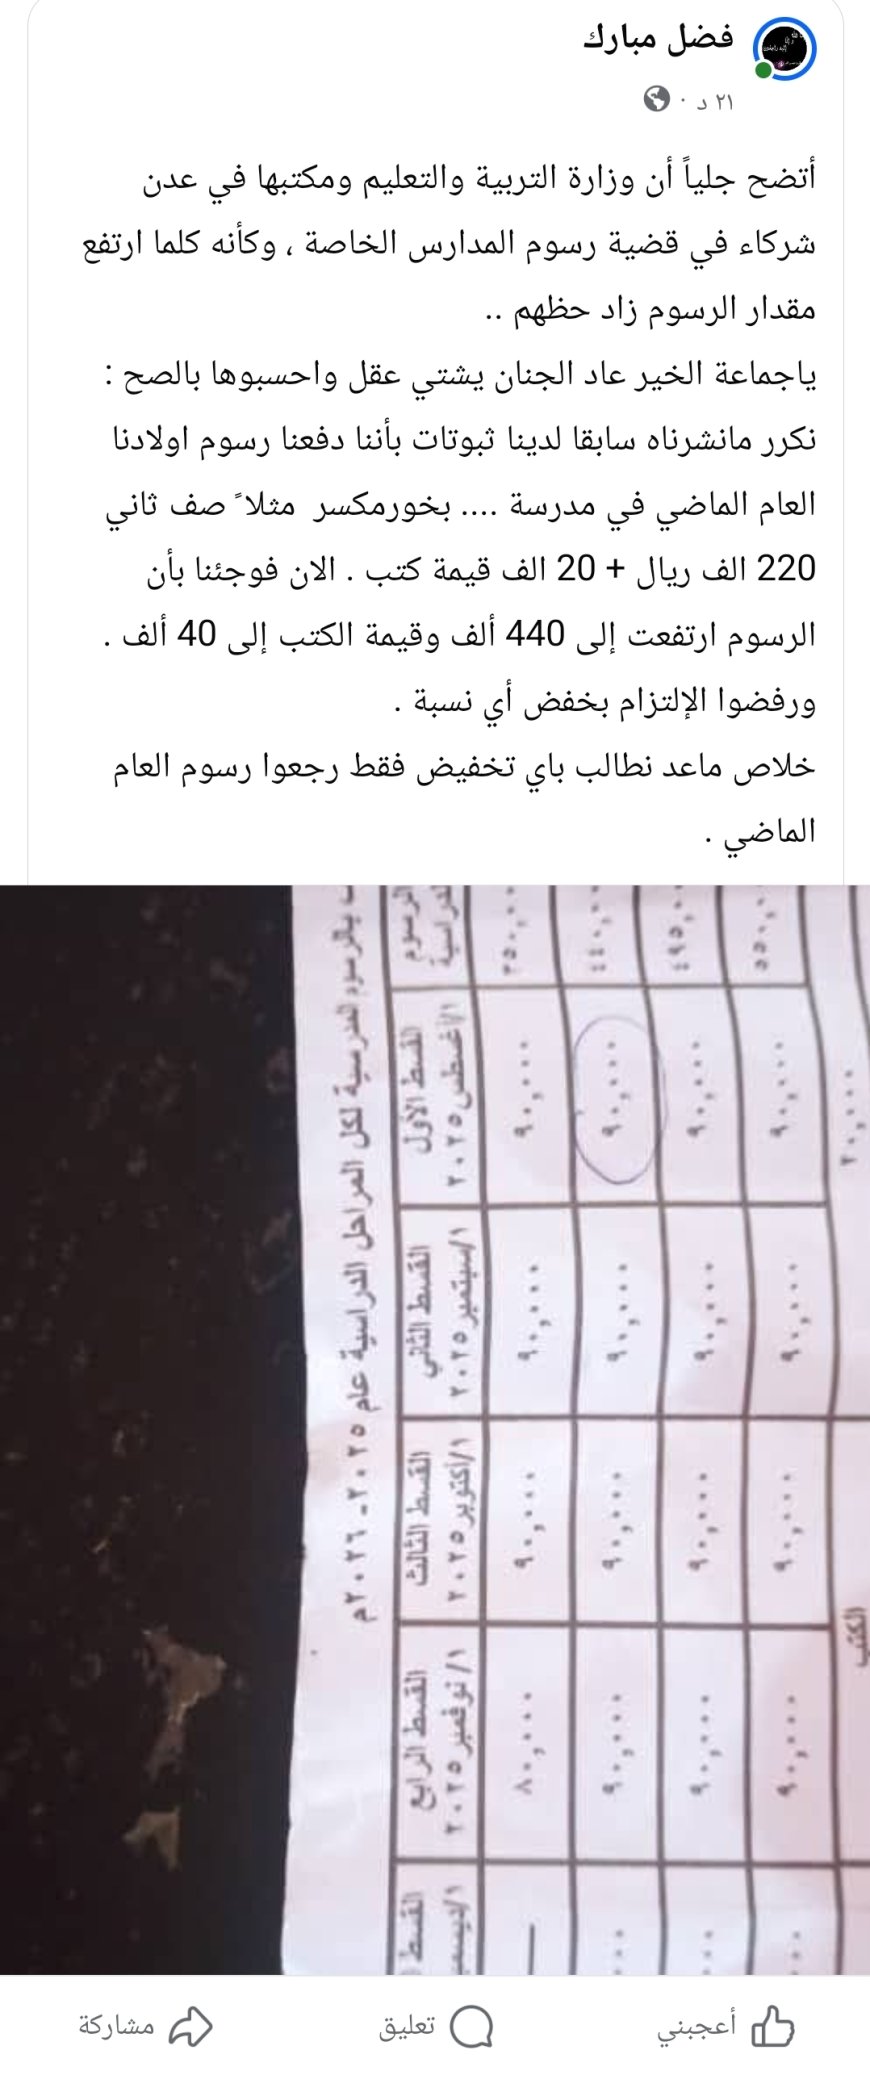 فضل مبارك
٢١ د ·
أتضح جلياً أن وزارة التربية والتعليم ومكتبها في عدن
شركاء في قضية رسوم المدارس الخاصة ، وكأنه كلما ارتفع
مقدار الرسوم زاد حظهم ..
ياجماعة الخير عاد الجنان يشتي عقل واحسبوها بالصح :
نكرر مانشرناه سابقا لدينا ثبوتات بأننا دفعنا رسوم اولادنا
العام الماضي في مدرسة .... بخورمكسر مثلا ً صف ثاني
220 الف ريال + 20 الف قيمة كتب . الان فوجئنا بأن
الرسوم ارتفعت إلى 440 ألف وقيمة الكتب إلى 40 ألف .
ورفضوا الإلتزام بخفض أي نسبة .
خلاص ماعد نطالب باي تخفيض فقط رجعوا رسوم العام
الماضي .
بالرسوم المدرسية لكل المراحل الدراسية عام ٢٠٢٥-٢٠٢٦م
الرسوم القسط الأول القسط الثاني القسط الثالث القسط الرابع القسط
١/أغسطس٢٠٢٥ ١/سبتمبر٢٠٢٥ ١/أكتوبر٢٠٢٥ ١/نوفمبر٢٠٢٥
٩٠,٠٠٠ ٩٠,٠٠٠ ٩٠,٠٠٠ ٨٠,٠٠٠
٩٠,٠٠٠ ٩٠,٠٠٠ ٩٠,٠٠٠ ٩٠,٠٠٠
٩٠,٠٠٠ ٩٠,٠٠٠ ٩٠,٠٠٠ ٩٠,٠٠٠
٩٠,٠٠٠ ٩٠,٠٠٠ ٩٠,٠٠٠ ٩٠,٠٠٠
الكتب
أعجبني تعليق مشاركة